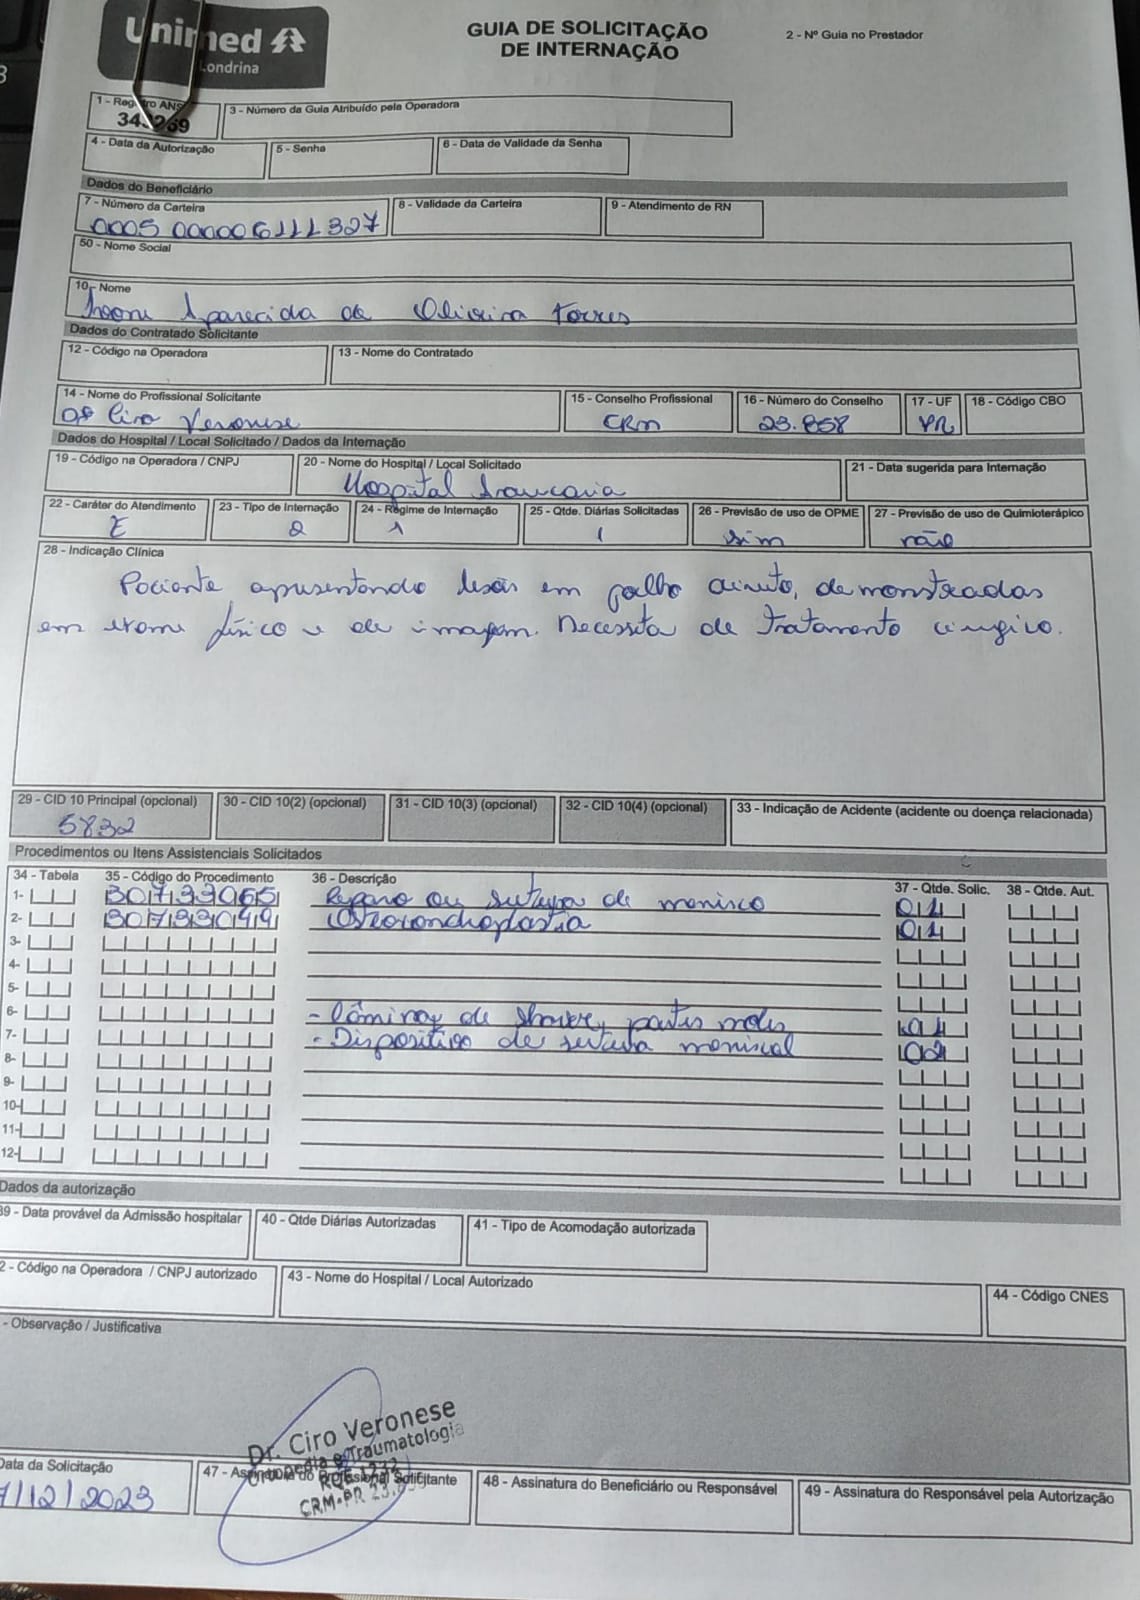 Unimed
Londrina
GUIA DE SOLICITAÇÃO
DE INTERNAÇÃO
2 - Nº Guia no Prestador
1 - Registro ANS
3 - Número da Guia Atribuído pela Operadora
4 - Data da Autorização
5 - Senha
6 - Data de Validade da Senha
Dados do Beneficiário
7 - Número da Carteira
0005 000006111327
8 - Validade da Carteira
9 - Atendimento de RN
50 - Nome Social
10 - Nome
Aparecida de Oliveira Torres
Dados do Contratado Solicitante
12 - Código na Operadora
13 - Nome do Contratado
14 - Nome do Profissional Solicitante
Ciro Veronese
15 - Conselho Profissional
CRM
16 - Número do Conselho
23.858
17 - UF
PR
18 - Código CBO
Dados do Hospital / Local Solicitado / Dados da Internação
19 - Código na Operadora / CNPJ
20 - Nome do Hospital / Local Solicitado
Hospital Araucaria
21 - Data sugerida para Internação
22 - Caráter do Atendimento
E
23 - Tipo de Internação
2
24 - Regime de Internação
1
25 - Qtde. Diárias Solicitadas
1
26 - Previsão de uso de OPME
sim
27 - Previsão de uso de Quimioterápico
não
28 - Indicação Clínica
Paciente apresentando lesão em joelho direito, demonstradas
em exame físico e de imagem. Necessita de tratamento cirúgico.
29 - CID 10 Principal (opcional)
S832
30 - CID 10(2) (opcional)
31 - CID 10(3) (opcional)
32 - CID 10(4) (opcional)
33 - Indicação de Acidente (acidente ou doença relacionada)
Procedimentos ou Itens Assistenciais Solicitados
34 - Tabela
35 - Código do Procedimento
36 - Descrição
37 - Qtde. Solic.
38 - Qtde. Aut.
1- 30733065 Reparo ou sutura de menisco 01
2- 30733049 Osteocondroplastia 01
3-
4-
5-
6- - Lâmina de shaver, partes moles 01
7- - Dispositivo de sutura meniscal 02
8-
9-
10-
11-
12-
Dados da autorização
39 - Data provável da Admissão hospitalar
40 - Qtde Diárias Autorizadas
41 - Tipo de Acomodação autorizada
2 - Código na Operadora / CNPJ autorizado
43 - Nome do Hospital / Local Autorizado
44 - Código CNES
- Observação / Justificativa
Dr. Ciro Veronese
Ortopedia e Traumatologia
CRM-PR
Data da Solicitação
7/12/2023
47 - Assinatura do Profissional Solicitante
48 - Assinatura do Beneficiário ou Responsável
49 - Assinatura do Responsável pela Autorização